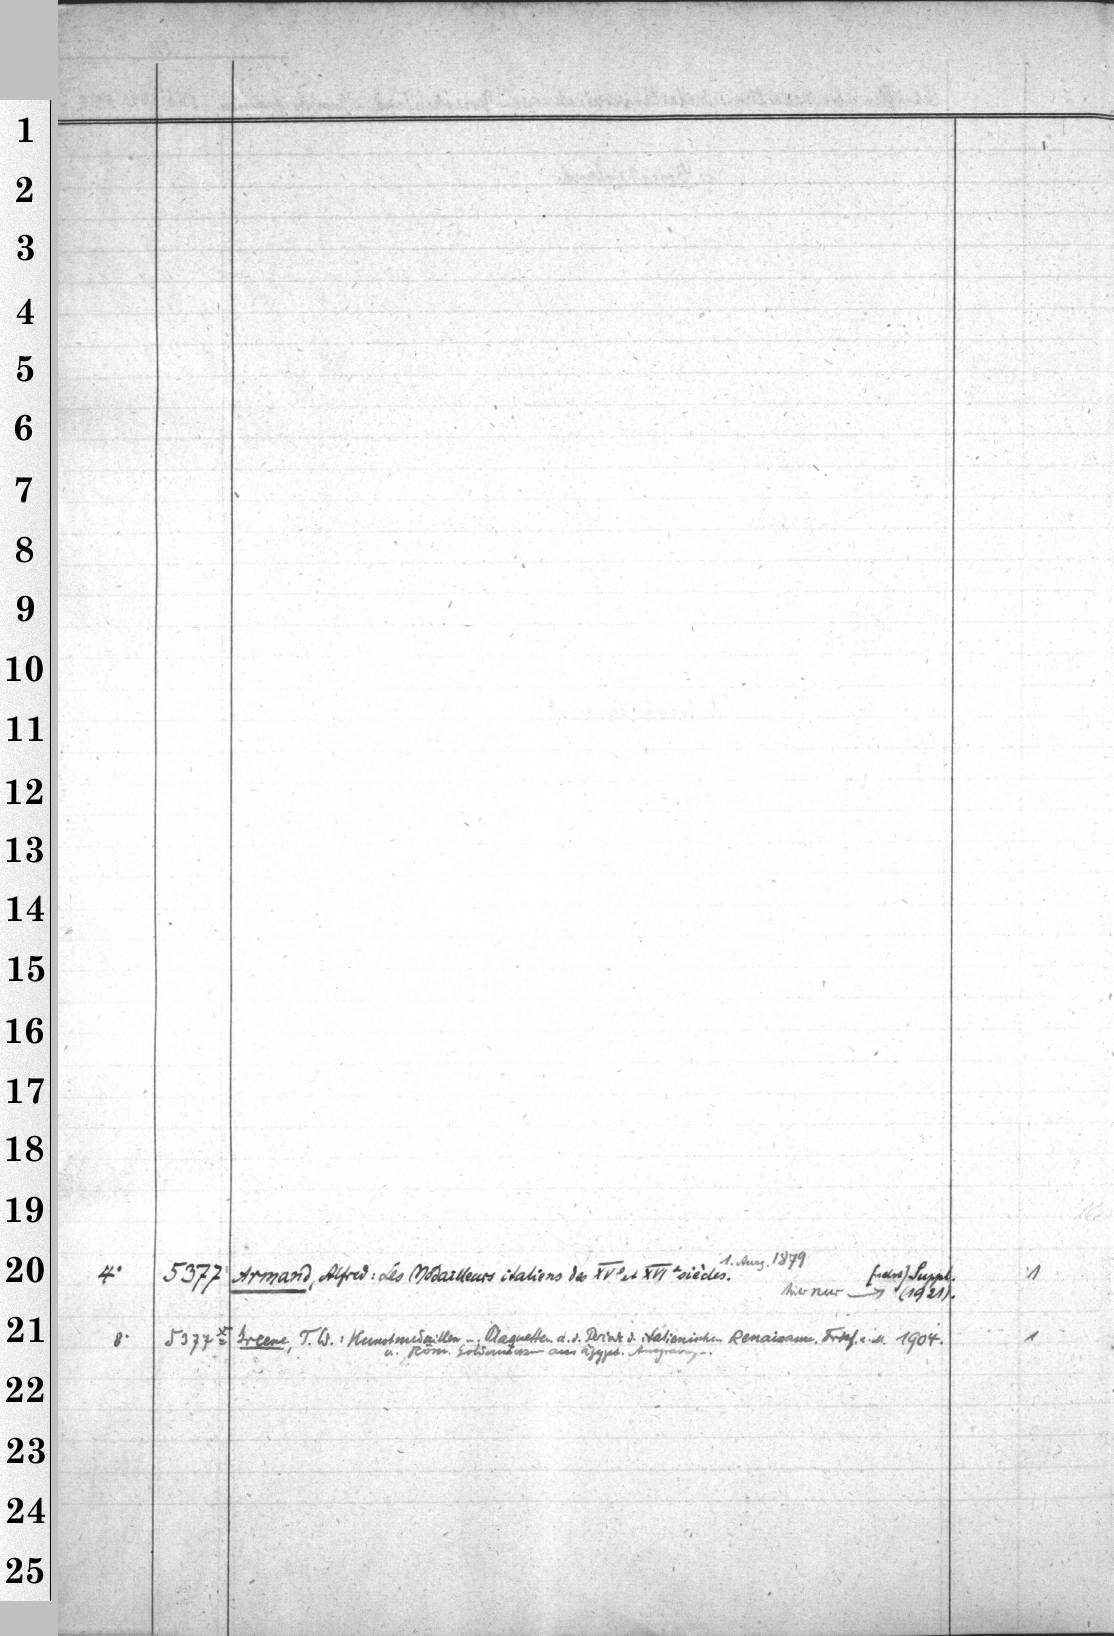 1
2
3
4
5
6
7
8
9
10
11
12
13
14
15
16
17
18
19
1. Aug. 1879
20 4° 5377 Armand, Alfred: Les Médailleurs italiens des XVe et XVIe siècles. Suppl. 1
hier nur → (1921).
21 8° 5377 Greene, T. W.: Kunstmedaillen Plaquetten a. d. Periode d. italienischen Renaissance. Frkf. a. M. 1904. 1
u. Röm. Goldmünzen aus ägypt.
22
23
24
25